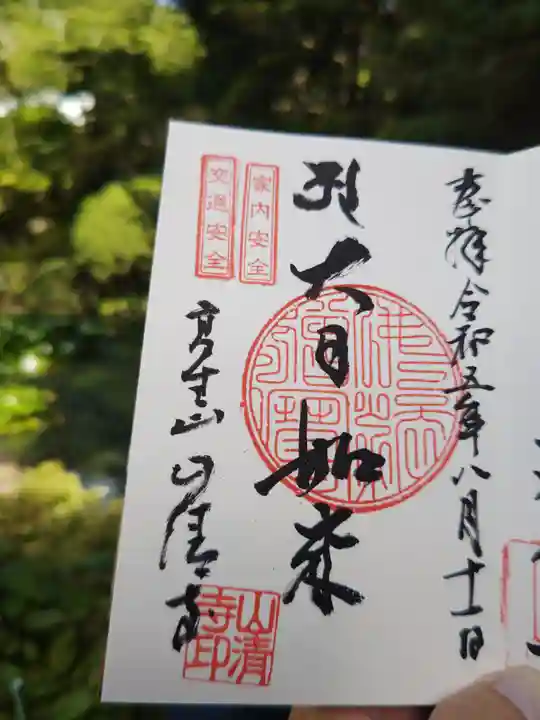 奉拝令和五年八月十一日
大日如来
家内安全
交通安全
高生山山清寺
山清寺印